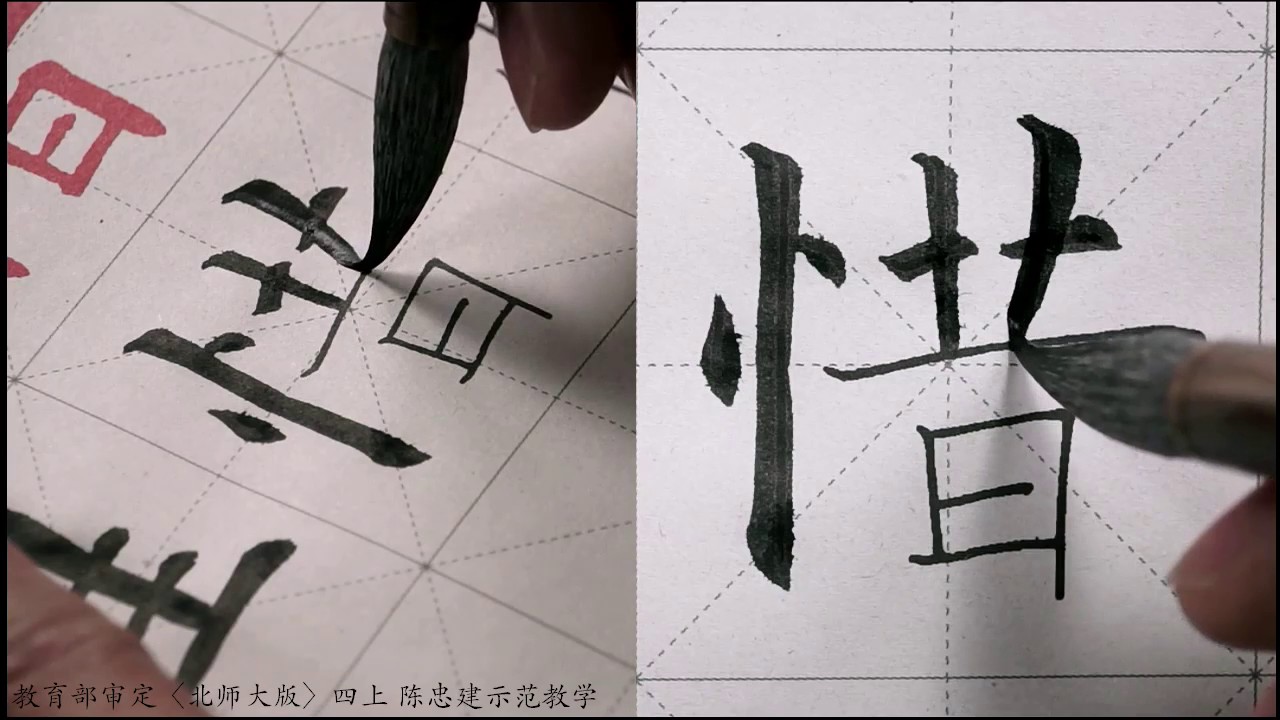 惜
惜
教育部审定〈北师大版〉四上 陈忠建示范教学